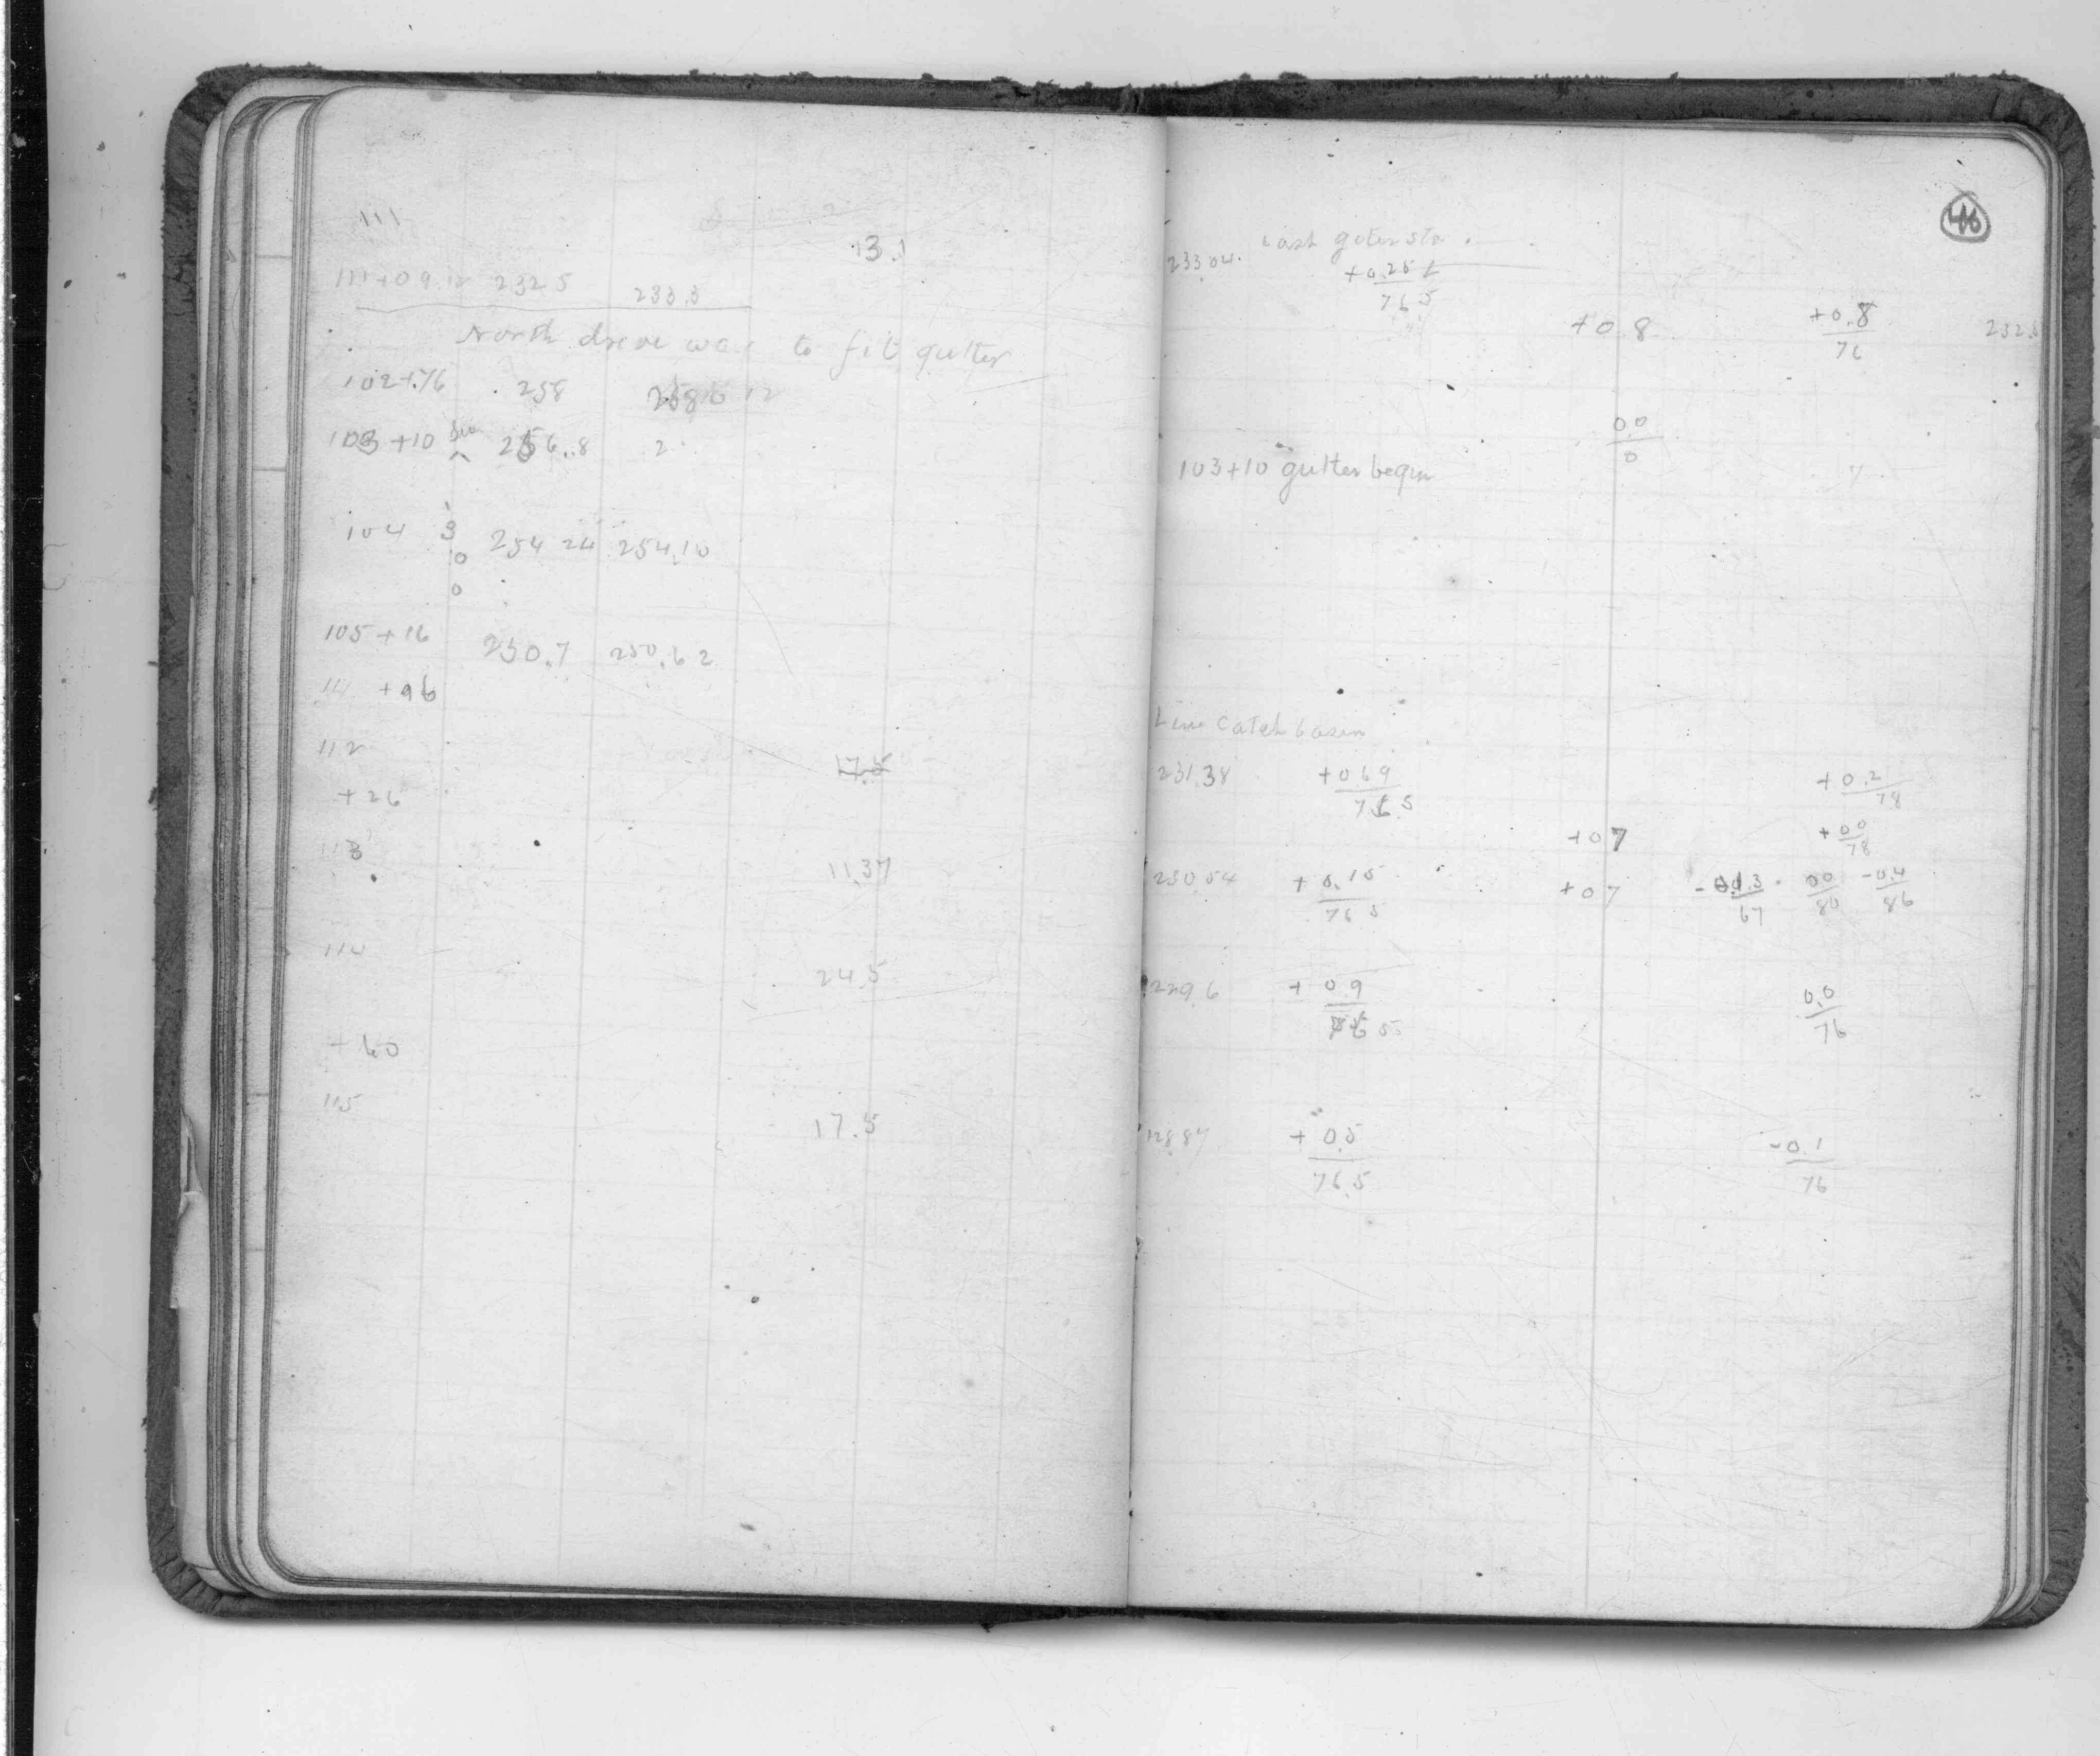 111
13.1
111+09.12 232.5 233.3
North drive way to fit gutter
102+76 258
103+10 256.8
104 254.24 254.10
105+16 250.7 250.62
111 +96
112 17.5
+26
113 11.37
114 24.5
+60
115 17.5
46
Last gutter sta.
233.04. +0.25
76.5
+0.8 +0.8 232.
76
0.0
0
103+10 gutter begin
Line catch basin
231.38 +0.69 +0.2
76.5 78
+0.7 +0.0
78
230.54 +0.15 +0.7 -0.3 0.0 -0.4
76.5 67 80 86
229.6 +0.9 0.0
76.5 76
228.87 +0.5 -0.1
76.5 76